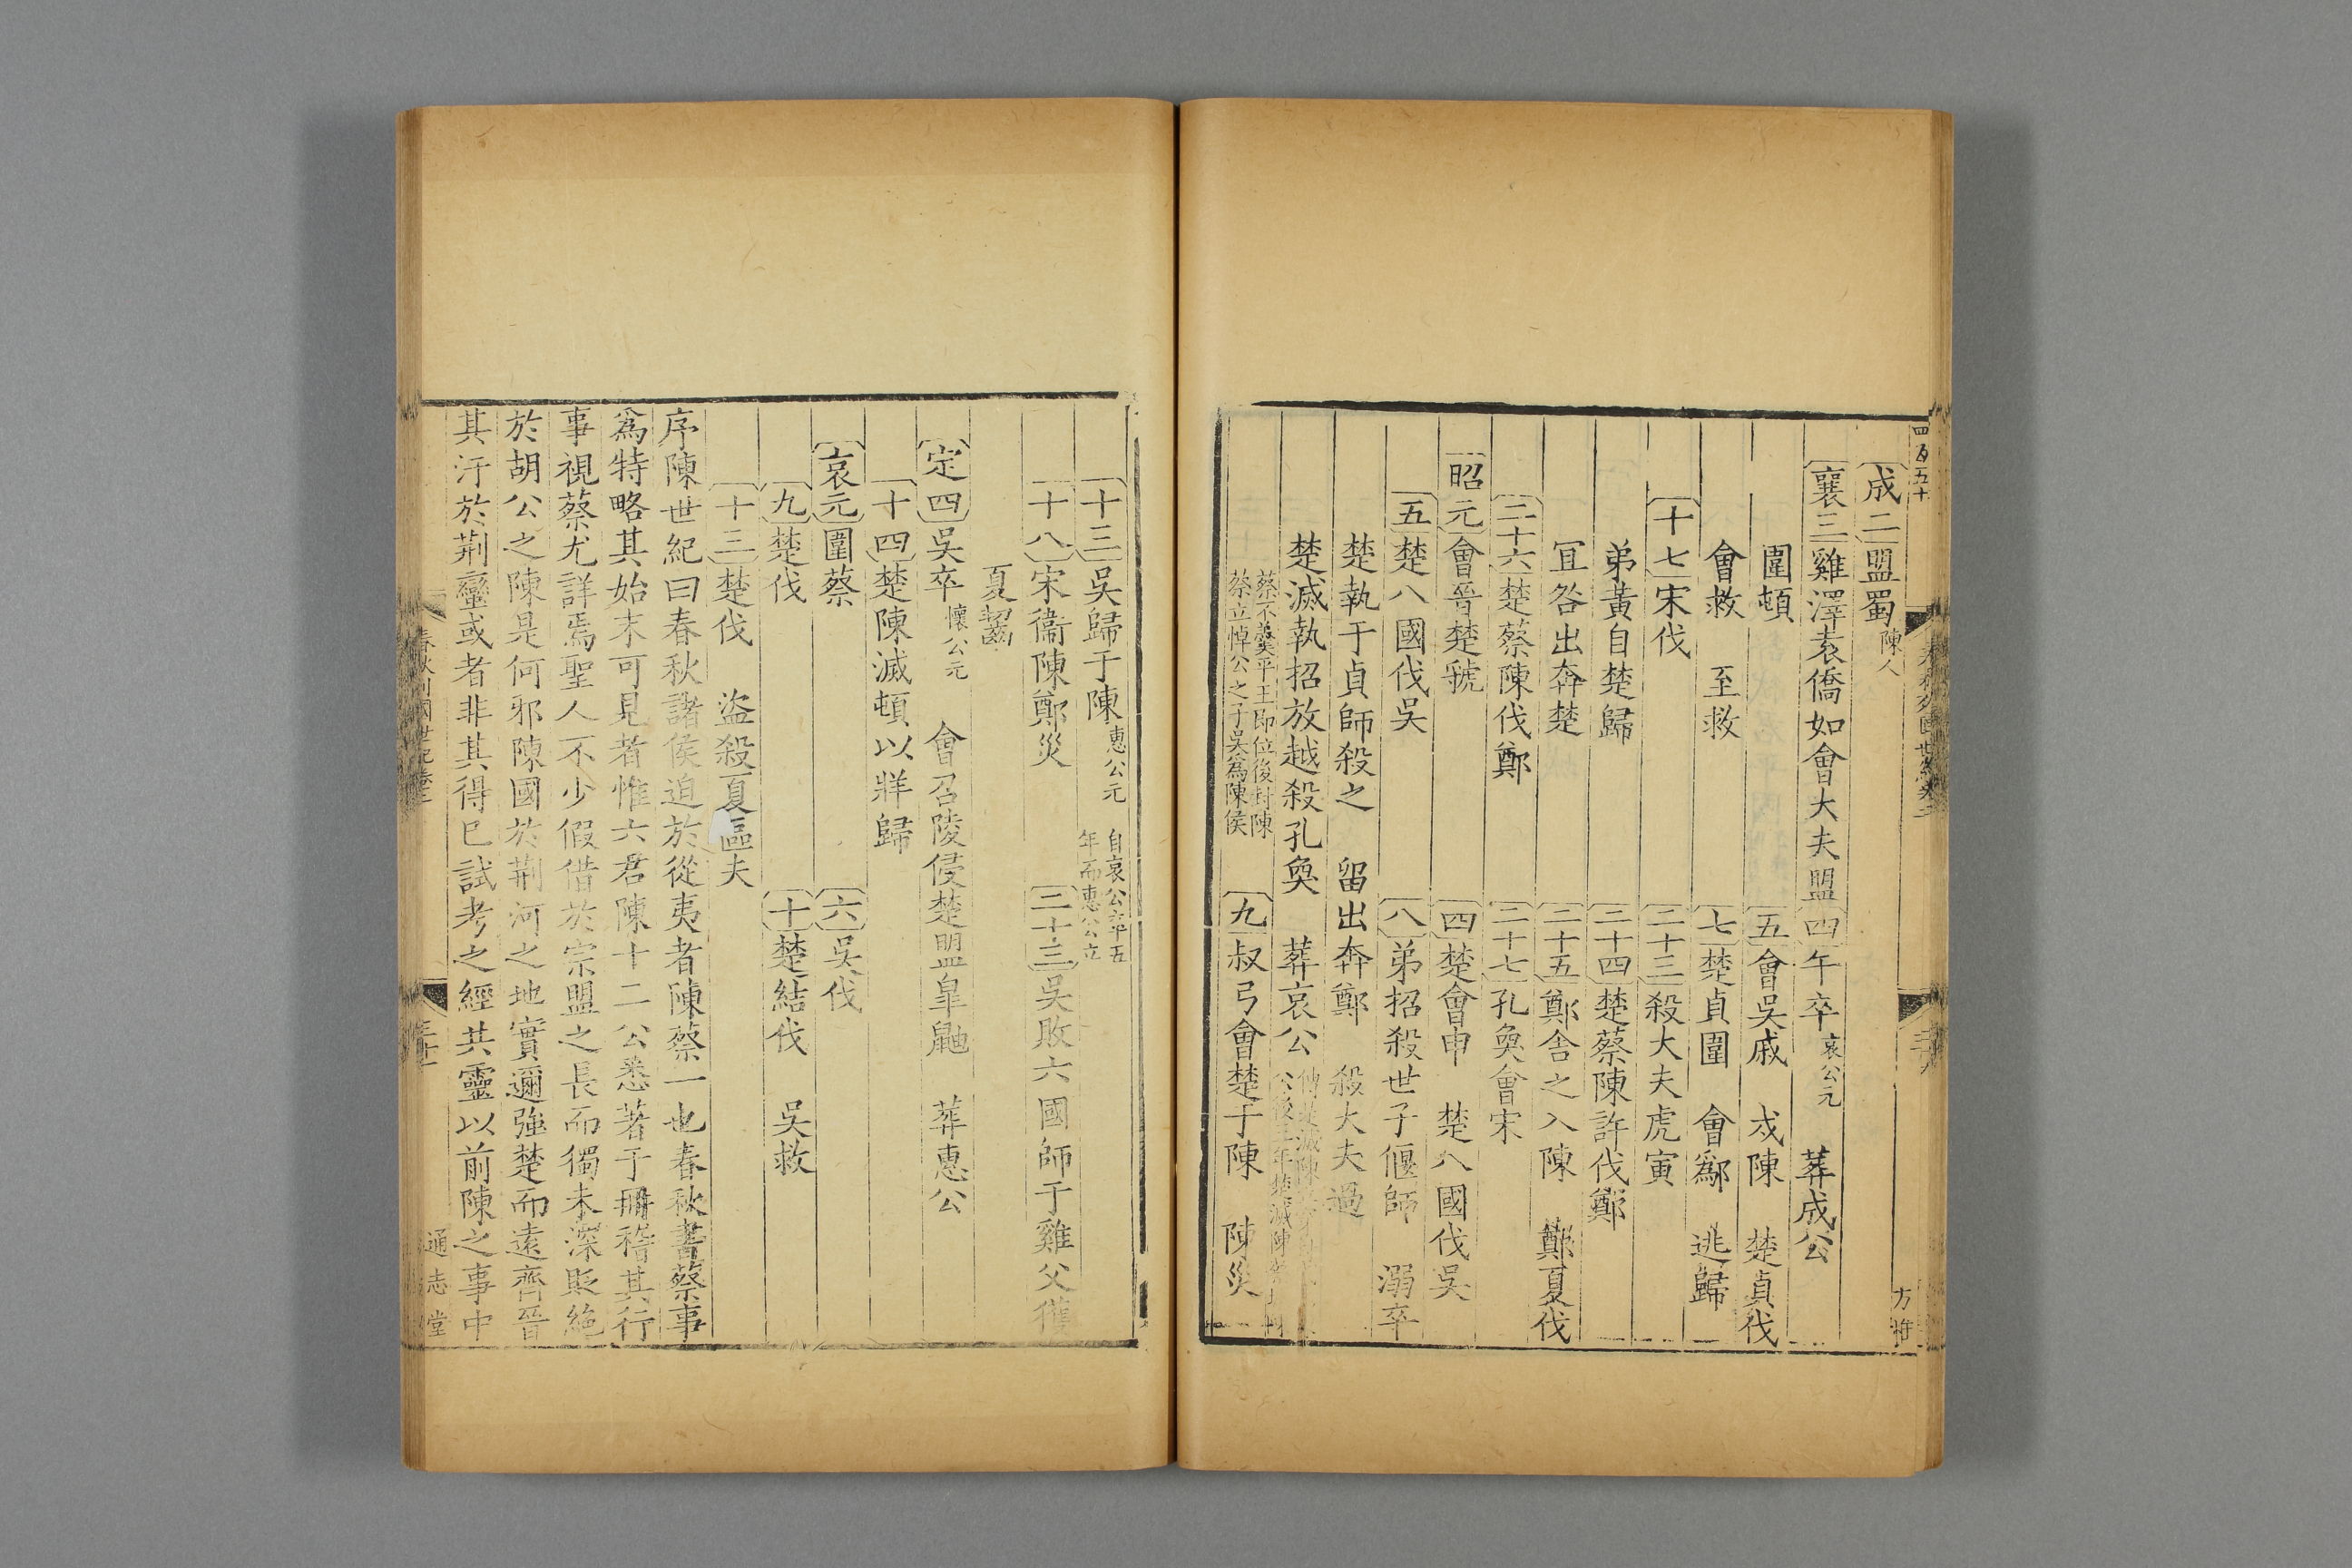 四百五十
成二盟蜀陳人
襄三雞澤袁僑如會大夫盟 四午卒哀公元 葬成公
圍頓 五會吳戚 戍陳 楚貞伐
會救 至救 七楚貞圍 會鄬 逃歸
十七宋伐 二十三殺大夫虎寅
弟黃自楚歸 二十四楚蔡陳許伐鄭
宜咎出奔楚 二十五鄭舍之入陳 鄭夏伐
二十六楚蔡陳伐鄭 二十七孔奐會宋
昭元會晉楚虢 四楚會申 楚八國伐吳
五楚八國伐吳 八弟招殺世子偃師 溺卒
楚執于貞師殺之 留出奔鄭 殺大夫過
楚滅執招放越殺孔奐 葬哀公
蔡不羮平王即位後封陳
蔡立悼公之子吳為陳侯
九叔弓會楚于陳 陳災
十三吳歸于陳惠公元 自哀公卒五
年而惠公立
十八宋衞陳鄭災 二十三吳敗六國師于雞父獲
夏齧
定四吳卒懷公元 會召陵侵楚盟臯鼬 葬惠公
十四楚陳滅頓以牂歸
哀元圍蔡 六吳伐
九楚伐 十楚結伐 吳救
十三楚伐 盜殺夏區夫
序陳世紀曰春秋諸侯迫於從夷者陳蔡一也春秋書蔡事
為特略其始末可見者惟六君陳十二公悉著于冊稽其行
事視蔡尤詳焉聖人不少假借於宗盟之長而獨未深貶絶
於胡公之陳是何邪陳國於荆河之地實邇強楚而遠齊晉
其汙於荆蠻或者非其得已試考之經共靈以前陳之事中
通志堂